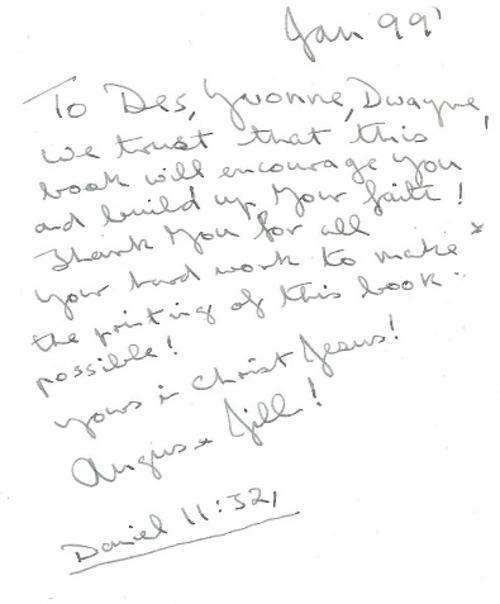 Jan 99'
To Des, Yvonne, Dwayne,
we trust that this
book will encourage you
and build up your faith!
Thank you for all
your hard work to make
the printing of this book
possible!
yours in Christ Jesus!
Angus & Jill!
Daniel 11:32,